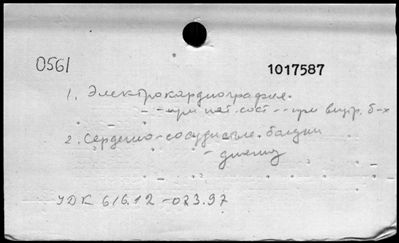 0561
1017587
1. Электрокардиография.
- - при пат. сост - - при внутр. б-х
2. Сердечно-сосудистые. болезни
- диагноз
УДК 616.12-073.97